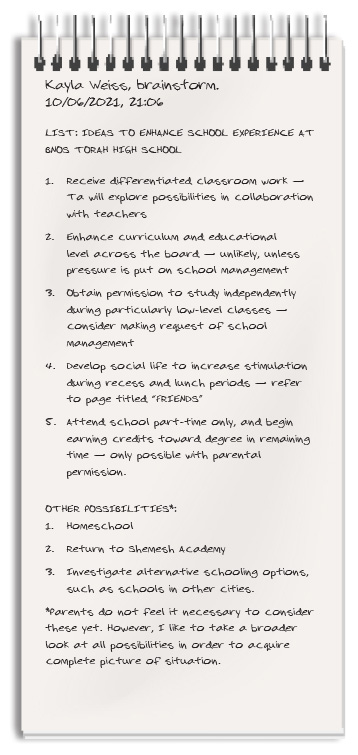 Kayla Weiss, brainstorm.
10/06/2021, 21:06
LIST: IDEAS TO ENHANCE SCHOOL EXPERIENCE AT
BNOS TORAH HIGH SCHOOL
1. Receive differentiated classroom work —
Ta will explore possibilities in collaboration
with teachers
2. Enhance curriculum and educational
level across the board — unlikely, unless
pressure is put on school management
3. Obtain permission to study independently
during particularly low-level classes —
consider making request of school
management
4. Develop social life to increase stimulation
during recess and lunch periods — refer
to page titled "FRIENDS"
5. Attend school part-time only, and begin
earning credits toward degree in remaining
time — only possible with parental
permission.
OTHER POSSIBILITIES*:
1. Homeschool
2. Return to Shemesh Academy
3. Investigate alternative schooling options,
such as schools in other cities.
*Parents do not feel it necessary to consider
these yet. However, I like to take a broader
look at all possibilities in order to acquire
complete picture of situation.